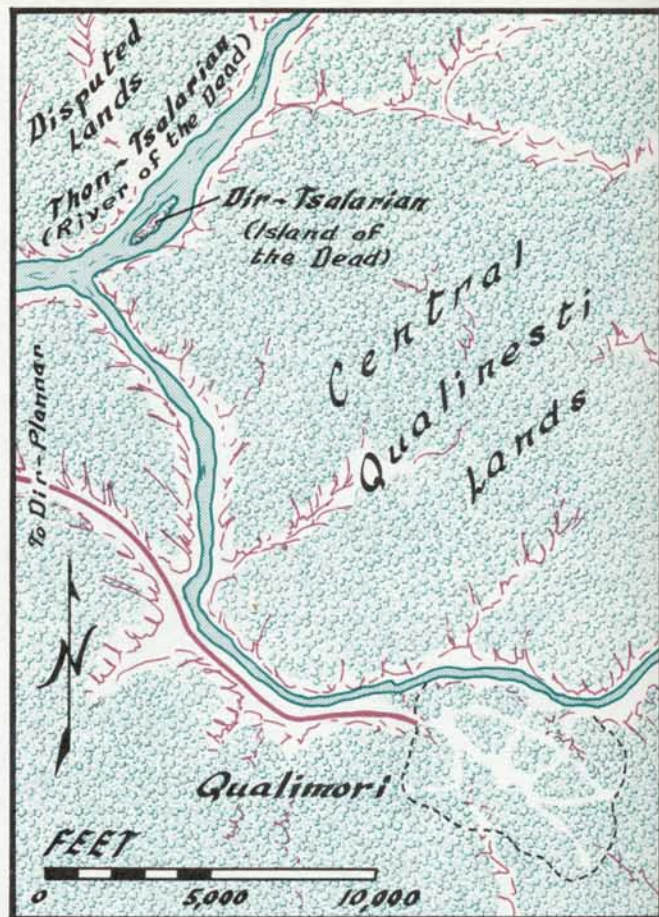 Disputed
Lands
Thon~Tsalarian
(River of the Dead)
Dir~Tsalarian
(Island of
the Dead)
Central
Qualinesti
Lands
To Dir~Plannar
N
Qualimori
FEET
0 5,000 10,000